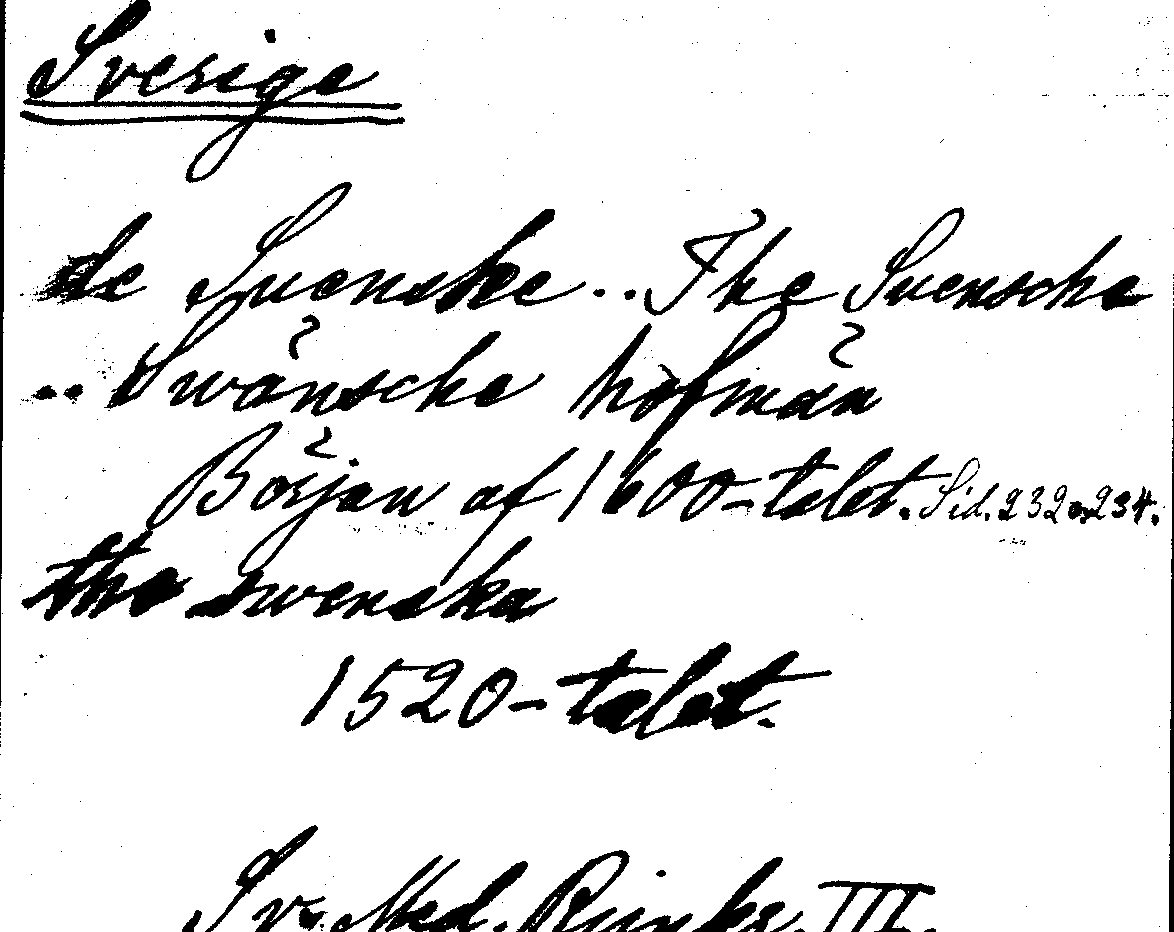 Sverige
de Svenske .. The Svensche
.. Swänsche hofmän
Början af 1600-talet. Sid. 232 o. 234.
the swenska
1520-talet.
Sv. Med. Rimkr. III.